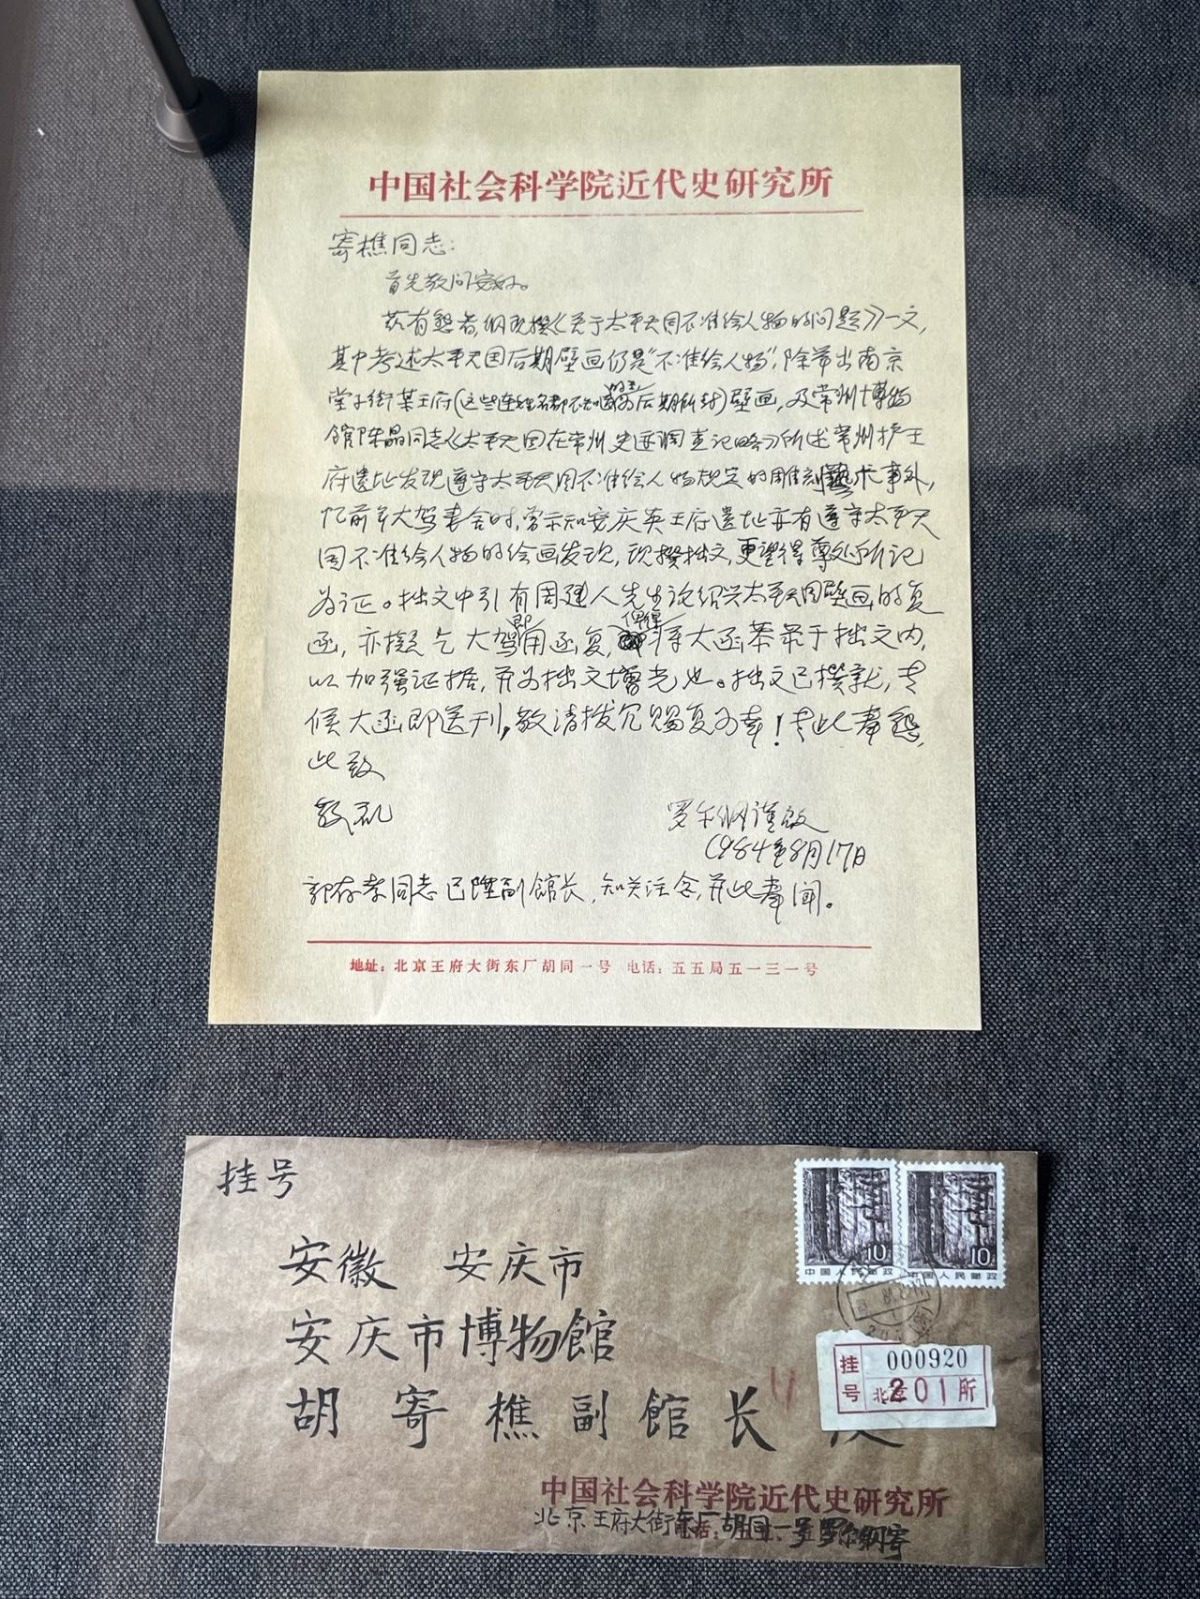 中国社会科学院近代史研究所
寄樵同志：
首先敬问安好。
兹有恳者，纲现撰《关于太平天国不准绘人物的问题》一文，
其中考述太平天国后期壁画仍是“不准绘人物”，除举出南京
堂子街某王府(这些连姓名都不知道的王为后期所封)壁画，及常州博物
馆陈晶同志《太平天国在常州史迹调查记略》所述常州护王
府遗址发现遵守太平天国不准绘人物规定的雕刻艺术事外，
忆前年大驾来舍时，曾示知安庆英王府遗址亦有遵守太平天
国不准绘人物的绘画发现，现撰拙文，更望得尊处所记
为证。拙文中引有周建人先生论绍兴太平天国壁画的复
函，亦拟乞大驾即用函复，俾得将大函恭录于拙文内，
以加强证据，并为拙文增光也。拙文已撰就，专
候大函即送刊，敬请拨冗赐复为幸！专此奉恳，
此致
敬礼
罗尔纲谨启
1984年8月17日
郭存孝同志已升副馆长，知关注念，并此奉闻。
地址：北京王府大街东厂胡同一号 电话：五五局五一三一号
挂号
安徽 安庆市
安庆市博物館
胡寄樵副館长
10
中国人民邮政
10
中国人民邮政
挂号
000920
北京201所
中国社会科学院近代史研究所
北京王府大街东厂胡同一号罗尔纲寄